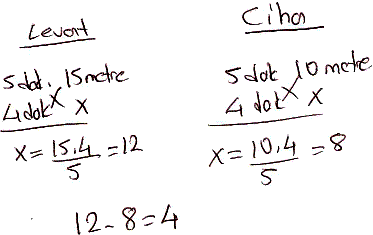 Levent
5 dak. 15 metre
4 dak x
x = 15.4 / 5 = 12
Cihan
5 dak 10 metre
4 dak x
x = 10.4 / 5 = 8
12 - 8 = 4